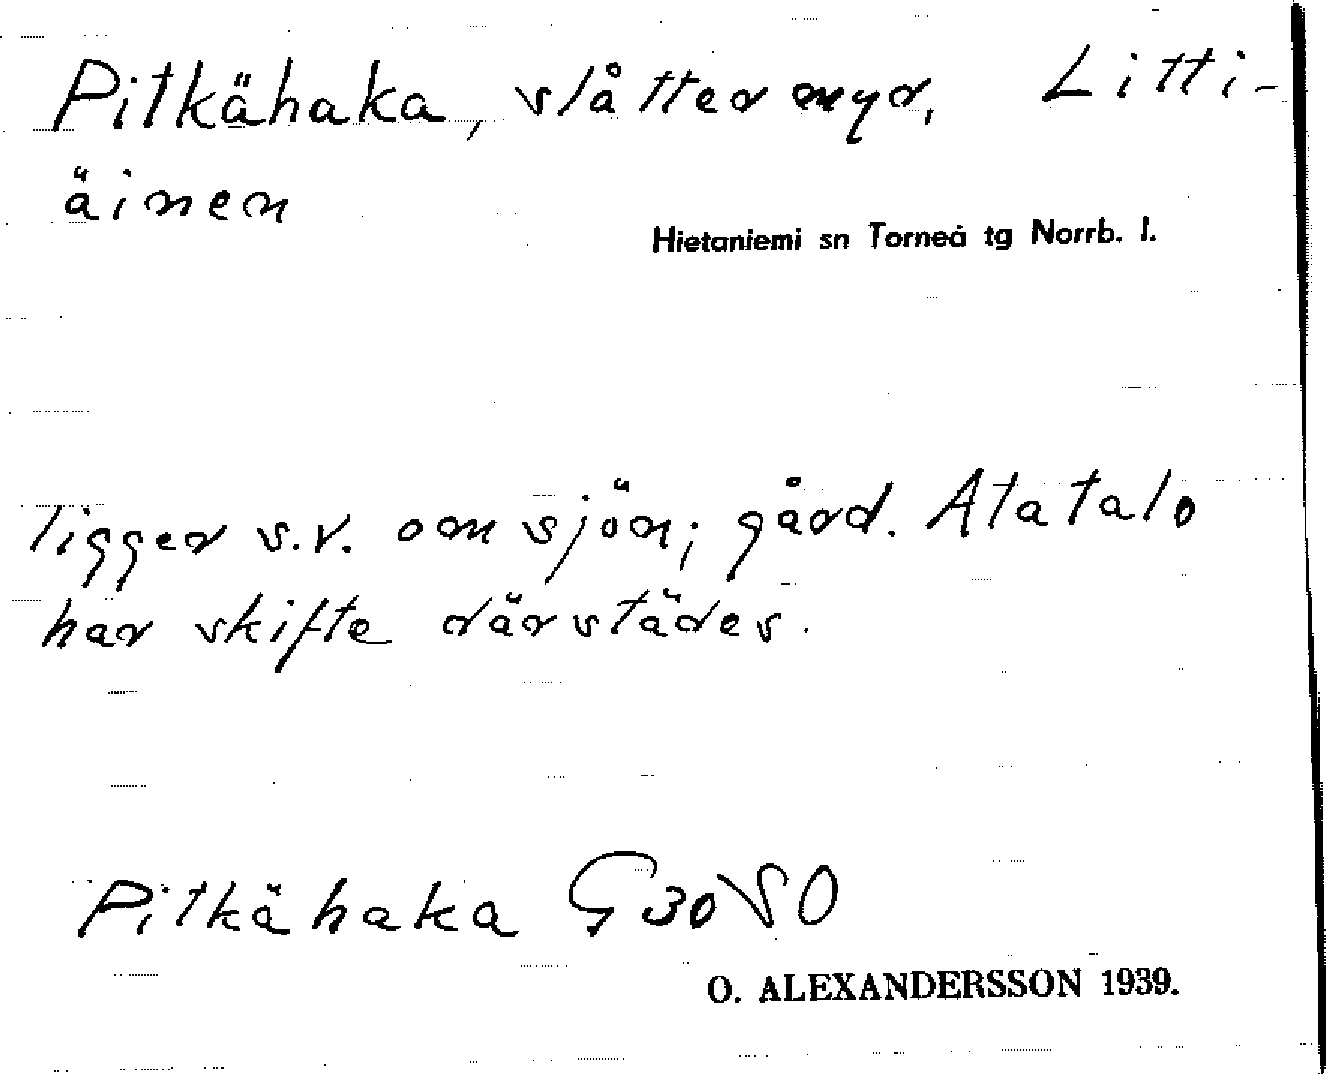 Pitkähaka, slåttermyr, Litti-
äinen
Hietaniemi sn Torneå tg Norrb. l.
ligger s.v. om sjön; gård. Alatalo
har skifte därstädes.
Pitkähaka G30SO
O. ALEXANDERSSON 1939.